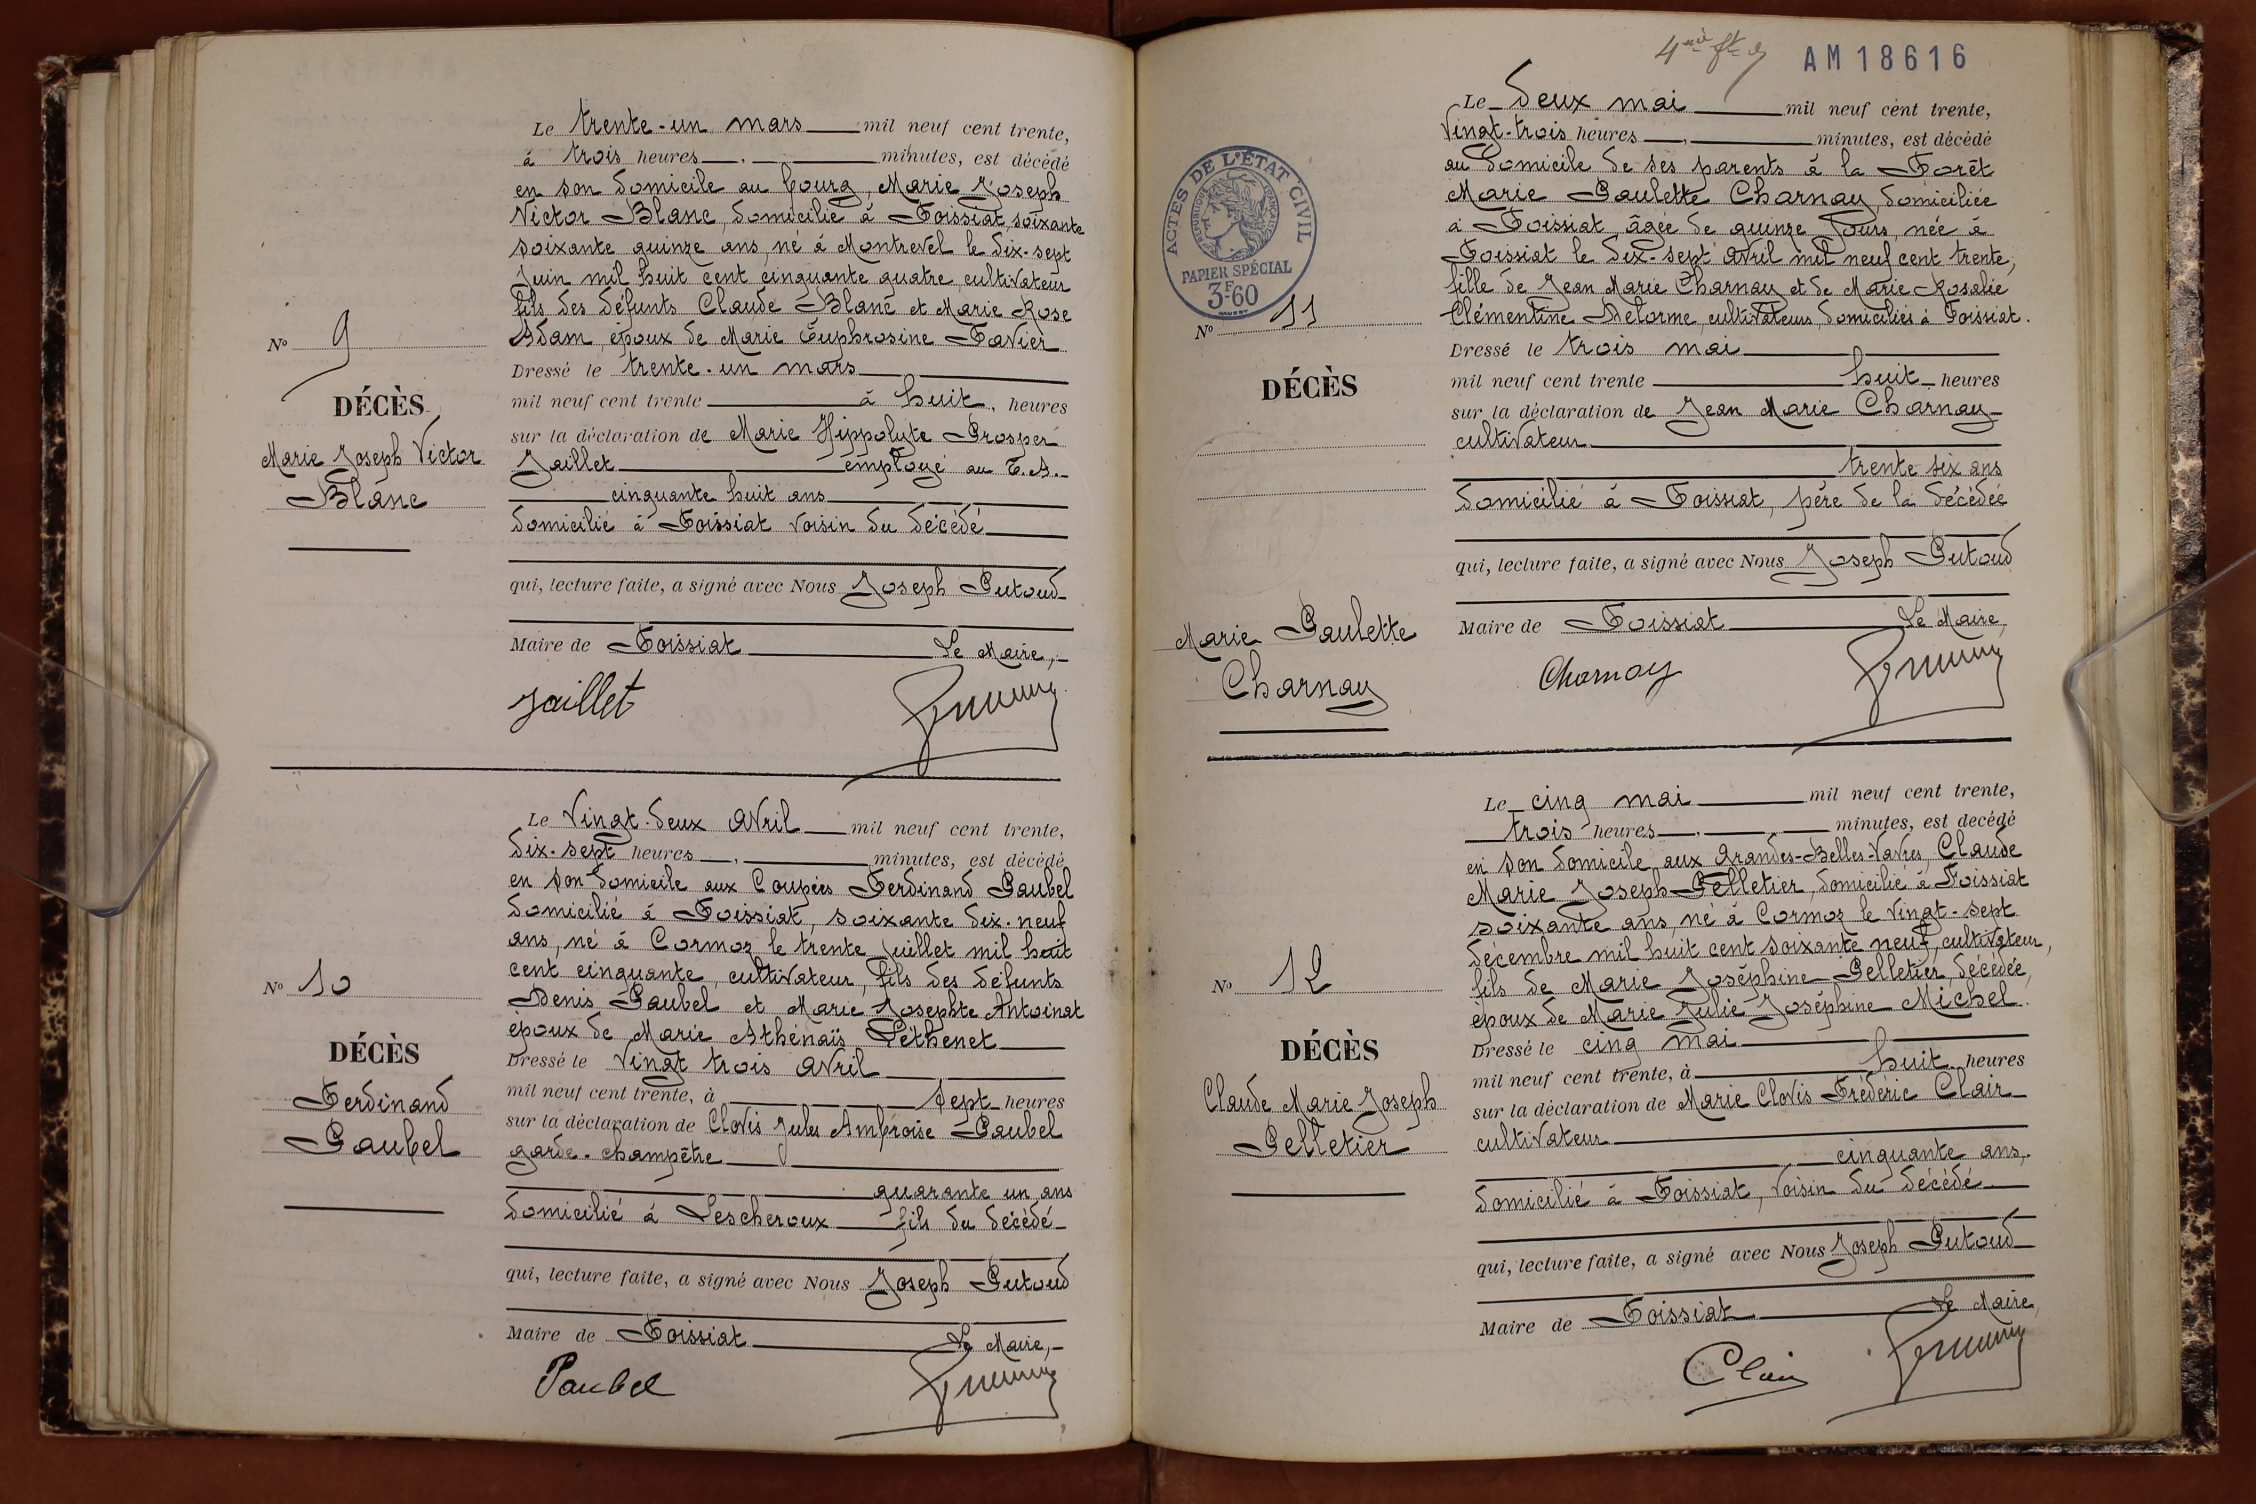 Le trente-un mars mil neuf cent trente,
à trois heures minutes, est décédé
en son domicile au bourg, Marie Joseph
Victor Blanc, domicilié à Foissiat, soixante
soixante quinze ans, né à Montrevel le dix-sept
Juin mil huit cent cinquante quatre, cultivateur
fils des défunts Claude Blanc et Marie Rose
Adam, époux de Marie Euphrosine Favier
Dressé le trente-un mars
mil neuf cent trente à huit heures
sur la déclaration de Marie Hippolyte Prosper
Jaillet employé au T.A.
cinquante huit ans
domicilié à Foissiat voisin du décédé
qui, lecture faite, a signé avec Nous Joseph Putoud
Maire de Foissiat Le Maire,
Jaillet
No 9
DÉCÈS
Marie Joseph Victor
Blanc
Le Vingt-deux Avril mil neuf cent trente,
dix-sept heures minutes, est décédé
en son domicile aux Coupées Ferdinand Paubel
domicilié à Foissiat, soixante dix-neuf
ans, né à Cormoz le trente Juillet mil huit
cent cinquante, cultivateur, fils des défunts
Denis Paubel et Marie Josephte Antoinat
époux de Marie Athénaïs Péthenet
Dressé le Vingt trois Avril
mil neuf cent trente, à sept heures
sur la déclaration de Clovis Jules Ambroise Paubel
garde-champêtre
quarante un ans
domicilié à Lescheroux fils du décédé
qui, lecture faite, a signé avec Nous Joseph Putoud
Maire de Foissiat Le Maire,
Paubel
No 10
DÉCÈS
Ferdinand
Paubel
AM 18616
ACTES DE L'ÉTAT CIVIL
RÉPUBLIQUE FRANÇAISE
PAPIER SPÉCIAL
3F-60
Le deux mai mil neuf cent trente,
Vingt-trois heures minutes, est décédé
au domicile de ses parents à la Forêt
Marie Paulette Charnay, domiciliée
à Foissiat, âgée de quinze Jours, née à
Foissiat le dix-sept Avril mil neuf cent trente,
fille de Jean Marie Charnay et de Marie Rosalie
Clémentine Delorme, cultivateurs, domiciliés à Foissiat.
Dressé le trois mai
mil neuf cent trente huit heures
sur la déclaration de Jean Marie Charnay
cultivateur
trente six ans
domicilié à Foissiat, père de la décédée
qui, lecture faite, a signé avec Nous Joseph Putoud
Maire de Foissiat Le Maire,
Charnay
No 11
DÉCÈS
Marie Paulette
Charnay
Le cinq mai mil neuf cent trente,
trois heures minutes, est decédé
en son domicile, aux Grandes-Belles-Vavres, Claude
Marie Joseph Pelletier, domicilié à Foissiat
soixante ans, né à Cormoz le Vingt-sept
décembre mil huit cent soixante neuf, cultivateur,
fils de Marie Joséphine Pelletier, décédée,
époux de Marie Julie Joséphine Michel.
Dressé le cinq mai
mil neuf cent trente, à huit heures
sur la déclaration de Marie Clovis Frédéric Clair
cultivateur
cinquante ans,
domicilié à Foissiat, voisin du décédé
qui, lecture faite, a signé avec Nous Joseph Putoud
Maire de Foissiat Le Maire,
Clair
No 12
DÉCÈS
Claude Marie Joseph
Pelletier